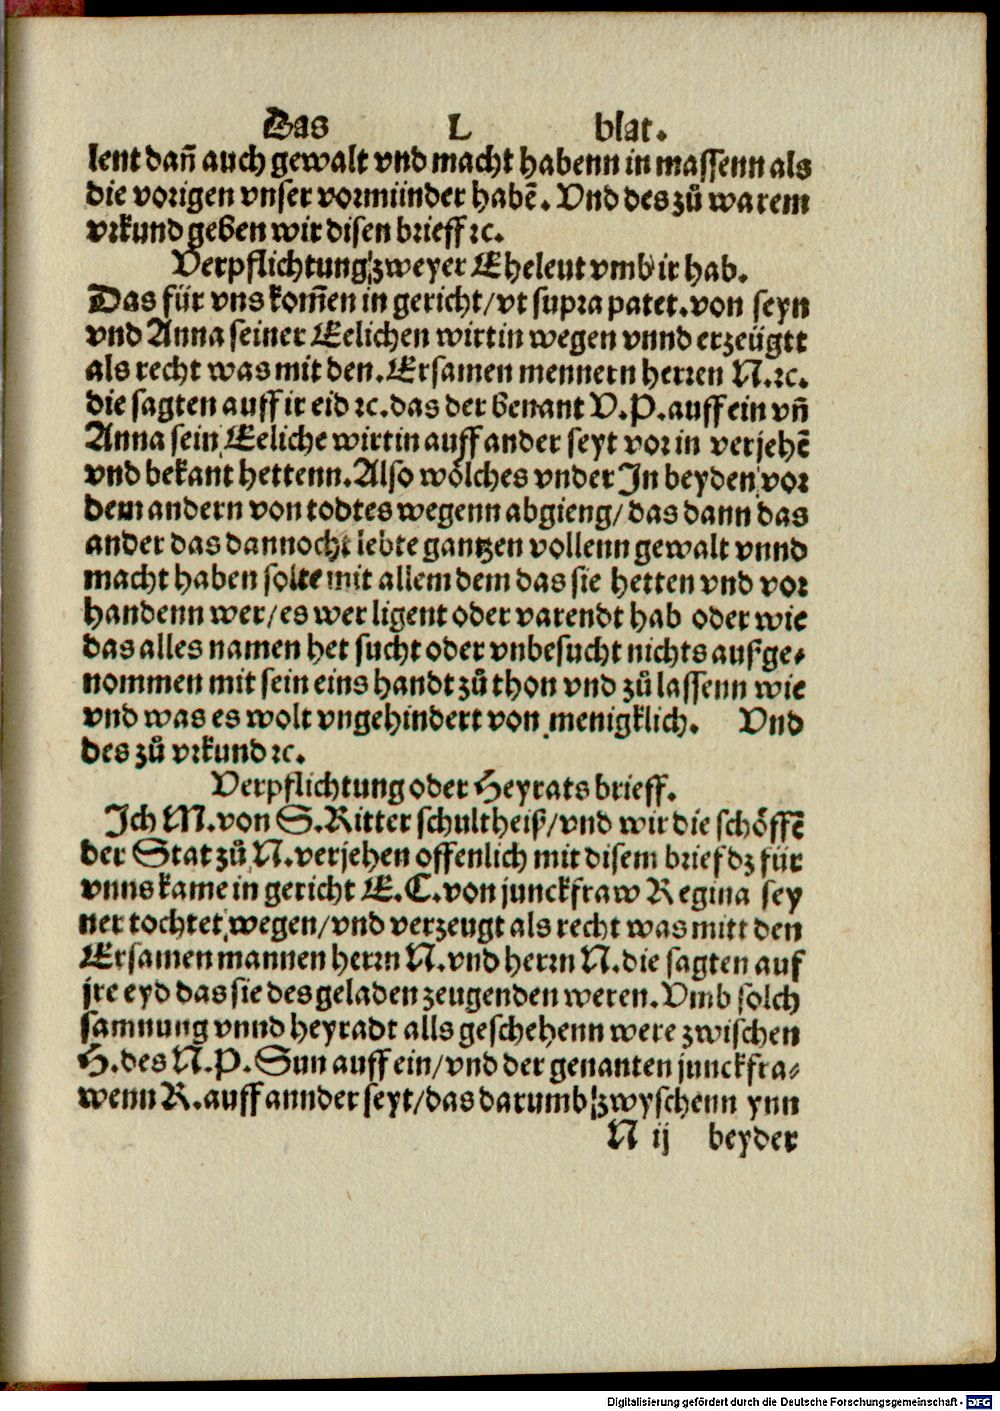 Das L blat.
lent dañ auch gewalt vnd macht habenn in massenn als
die vorigen vnser vormünder habẽ. Vnd des zů warem
vrkund geben wir disen brieff ꝛc.
Verpflichtung zweyer Eheleut vmb ir hab.
Das für vns kom̃en in gericht/vt supra patet. von seyn
vnd Anna seiner Eelichen wirtin wegen vnnd erzeügtt
als recht was mit den. Ersamen mennern herren N. ꝛc.
die sagten auff ir eid ꝛc. das der benant V. P. auff ein vñ
Anna sein Eeliche wirtin auff ander seyt vor in verjehẽ
vnd bekant hettenn. Also wölches vnder In beyden vor
dem andern von todtes wegenn abgieng/ das dann das
ander das dannocht lebte gantzen vollenn gewalt vnnd
macht haben solte mit allem dem das sie hetten vnd vor
handenn wer/es wer ligent oder varendt hab oder wie
das alles namen het sucht oder vnbesucht nichts außge⸗
nommen mit sein eins handt zů thon vnd zů lassenn wie
vnd was es wolt vngehindert von menigklich. Vnd
des zů vrkund ꝛc.
Verpflichtung oder Heyrats brieff.
Ich M. von S. Ritter schultheiß/vnd wir die schöffẽ
der Stat zů N. verjehen offenlich mit disem brief dz für
vnns kame in gericht E. C. von junckfraw Regina sey
ner tochtet wegen/vnd verzeugt als recht was mitt den
Ersamen mannen herrn N. vnd herrn N. die sagten auf
jre eyd das sie des geladen zeugenden weren. Vmb solch
samnung vnnd heyradt alls geschehenn were zwischen
H. des N. P. Sun auff ein/vnd der genanten junckfra⸗
wenn R. auff annder seyt/das darumb zwyschenn ynn
N ij beyder
Digitalisierung gefördert durch die Deutsche Forschungsgemeinschaft - DFG